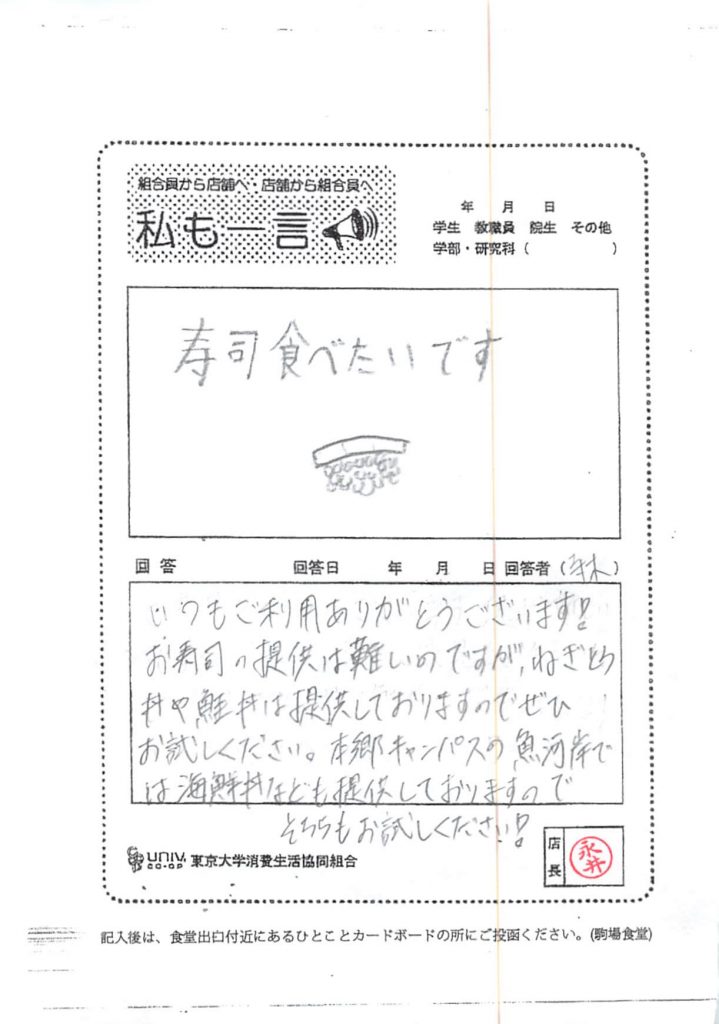 組合員から店舗へ・店舗から組合員へ
私も一言
年 月 日
学生 教職員 院生 その他
学部・研究科( )
寿司食べたいです
回答 回答日 年 月 日 回答者( )
いつもご利用ありがとうございます!
お寿司の提供は難しいのですが、ねぎとろ
丼や、鮭丼は提供しておりますのでぜひ
お試しください。本郷キャンパスの魚河岸で
は海鮮丼なども提供しておりますので
そちらもお試しください!
UNIV. CO-OP 東京大学消費生活協同組合
店長
永井
記入後は、食堂出口付近にあるひとことカードボードの所にご投函ください。(駒場食堂)